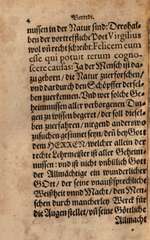 4 Vorrede.
nussen in der Natur sind: Derohal-
ben der vortrefflichste Dict Virgilius
wol vñ recht schreibt: Felicem eum
esse qui potuit rerum cogno-
scere causas: Ja der Mensch ist da-
zu geborn / die Natur zuerforschen /
vnd dardurch den Schöpffer dersel-
ben zuerkennen. Vnd wer solche Ge-
heimnussen aller verborgenen Din-
gen zu wissen begeret / der soll diesel-
ben zuerfahren / nirgend anderst wo
zusuchen gesinnet seyn / deñ bey Gott
dem HERREN / welcher allein der
rechte Lehrmeister ist aller Geheim-
nussen: vnd ist nicht vnbillich Gott
der Allmächtige ein wunderlicher
GOtt / der seine vnaussprechliche
Weißheit vnnd Macht / den Men-
schen durch mancherley Werck für
die Augen stellet / vñ seine Göttliche
Allmacht